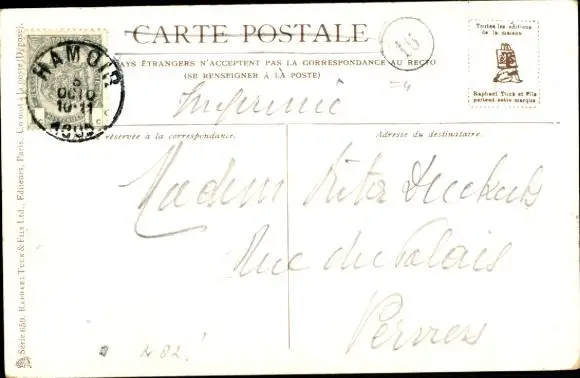 CARTE POSTALE
PAYS ÉTRANGERS N'ACCEPTENT PAS LA CORRESPONDANCE AU RECTO
(SE RENSEIGNER À LA POSTE)
HAMOIR
8
OCTO
10-11
1905
105
Toutes les éditions
de la maison
Raphael Tuck et Fils
portent cette marque.
Imprimé
réservée à la correspondance.
Adresse du destinataire.
Madem Rita
Rue du Palais
Verviers
482!
Série 659. RAPHAEL TUCK & FILS Ltd., Editeurs, Paris. Un mot à la poste (Déposé).